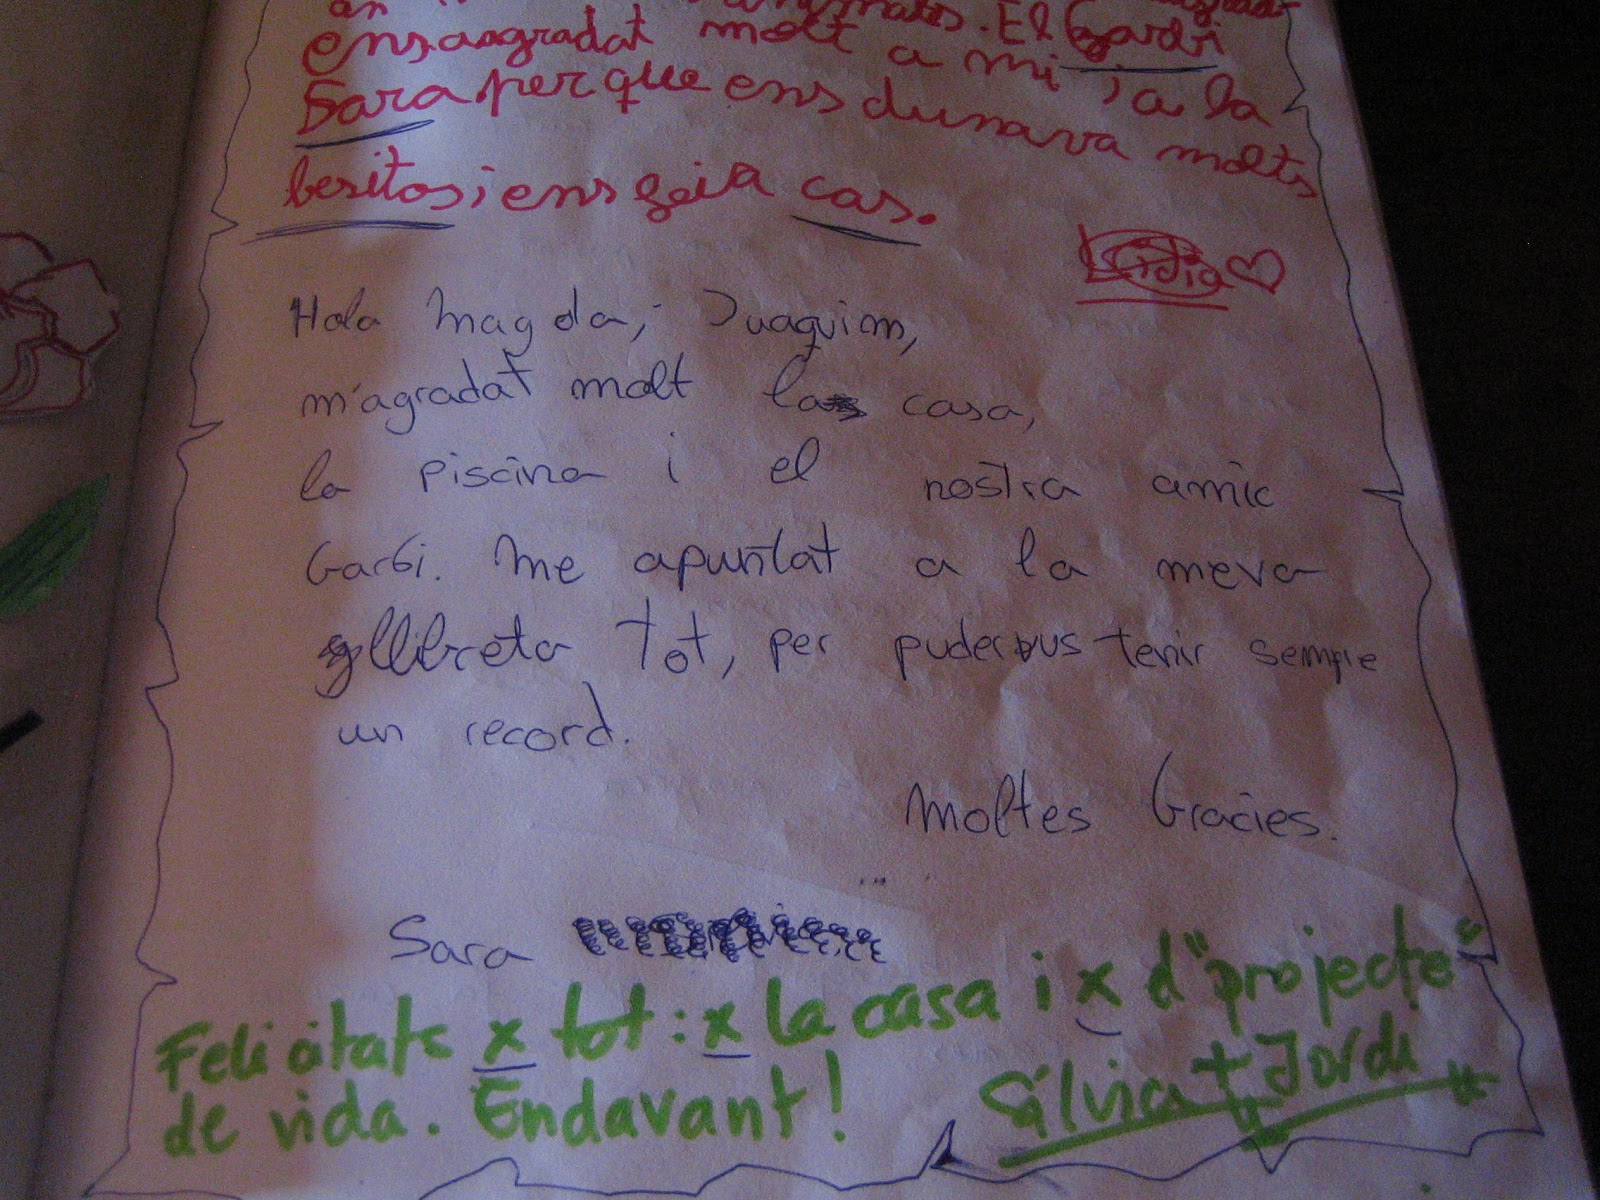 El Gardi
ensaagradat molt a mi i a la
Sara per que ens dunava molts
besitos i ens feia cas.
Lidia
Hola Magda, i Juaquim,
m'agradat molt la casa,
la piscina i el nostra amic
Garbi. Me apuntat a la meva
llibreta tot, per pudervus tenir sempre
un record.
Moltes Gràcies.
Sara
Felicitats x tot: x la casa i x d"projecte"
de vida. Endavant! Sílvia + Jordi